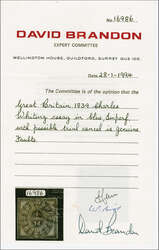 No. 16986
DAVID BRANDON
EXPERT COMMITTEE
WELLINGTON HOUSE, GUILDFORD, SURREY GU2 5DS.
Date 28-1-1994
The Committee is of the opinion that the
Great Britain 1839 Charles
Whiting essay in blue. Imperf
with possible trial cancel is genuine
Faults
16986
David Brandon